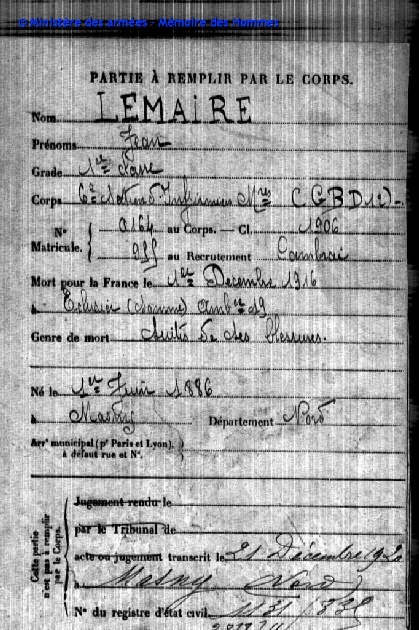 © Ministère des armées - Mémoire des Hommes
PARTIE À REMPLIR PAR LE CORPS.
Nom LEMAIRE
Prénoms Jean
Grade 1re Classe
Corps 6e Section d'Infirmiers Mres (GBD 12)
N° 0164 au Corps. — Cl. 1906
Matricule. 955 au Recrutement Cambrai
Mort pour la France le 1er Décembre 1916
à Eclusier (Somme) Ambce 19
Genre de mort Suites de ses blessures.
Né le 1er Juin 1886
à Masny Département Nord
Arrt municipal (pr Paris et Lyon),
à défaut rue et N°.
Cette partie
n'est pas à remplir
par le Corps.
Jugement rendu le
par le Tribunal de
acte ou jugement transcrit le 21 Décembre 1920
à Masny Nord
N° du registre d'état civil